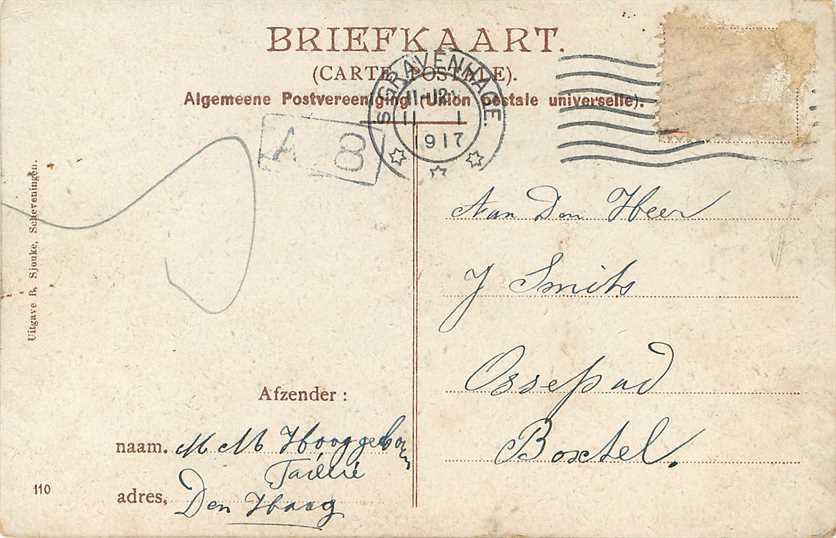 BRIEFKAART.
(CARTE POSTALE).
Algemeene Postvereeniging (Union postale universelle).
'S GRAVENHAGE
11-12
11 1
1917
A 8
Uitgave B. Sjouke, Scheveningen.
Aan Den Heer
J Smits
Ossepad
Boxtel.
Afzender :
naam. M M Hooggeboren
adres, Den Haag
110